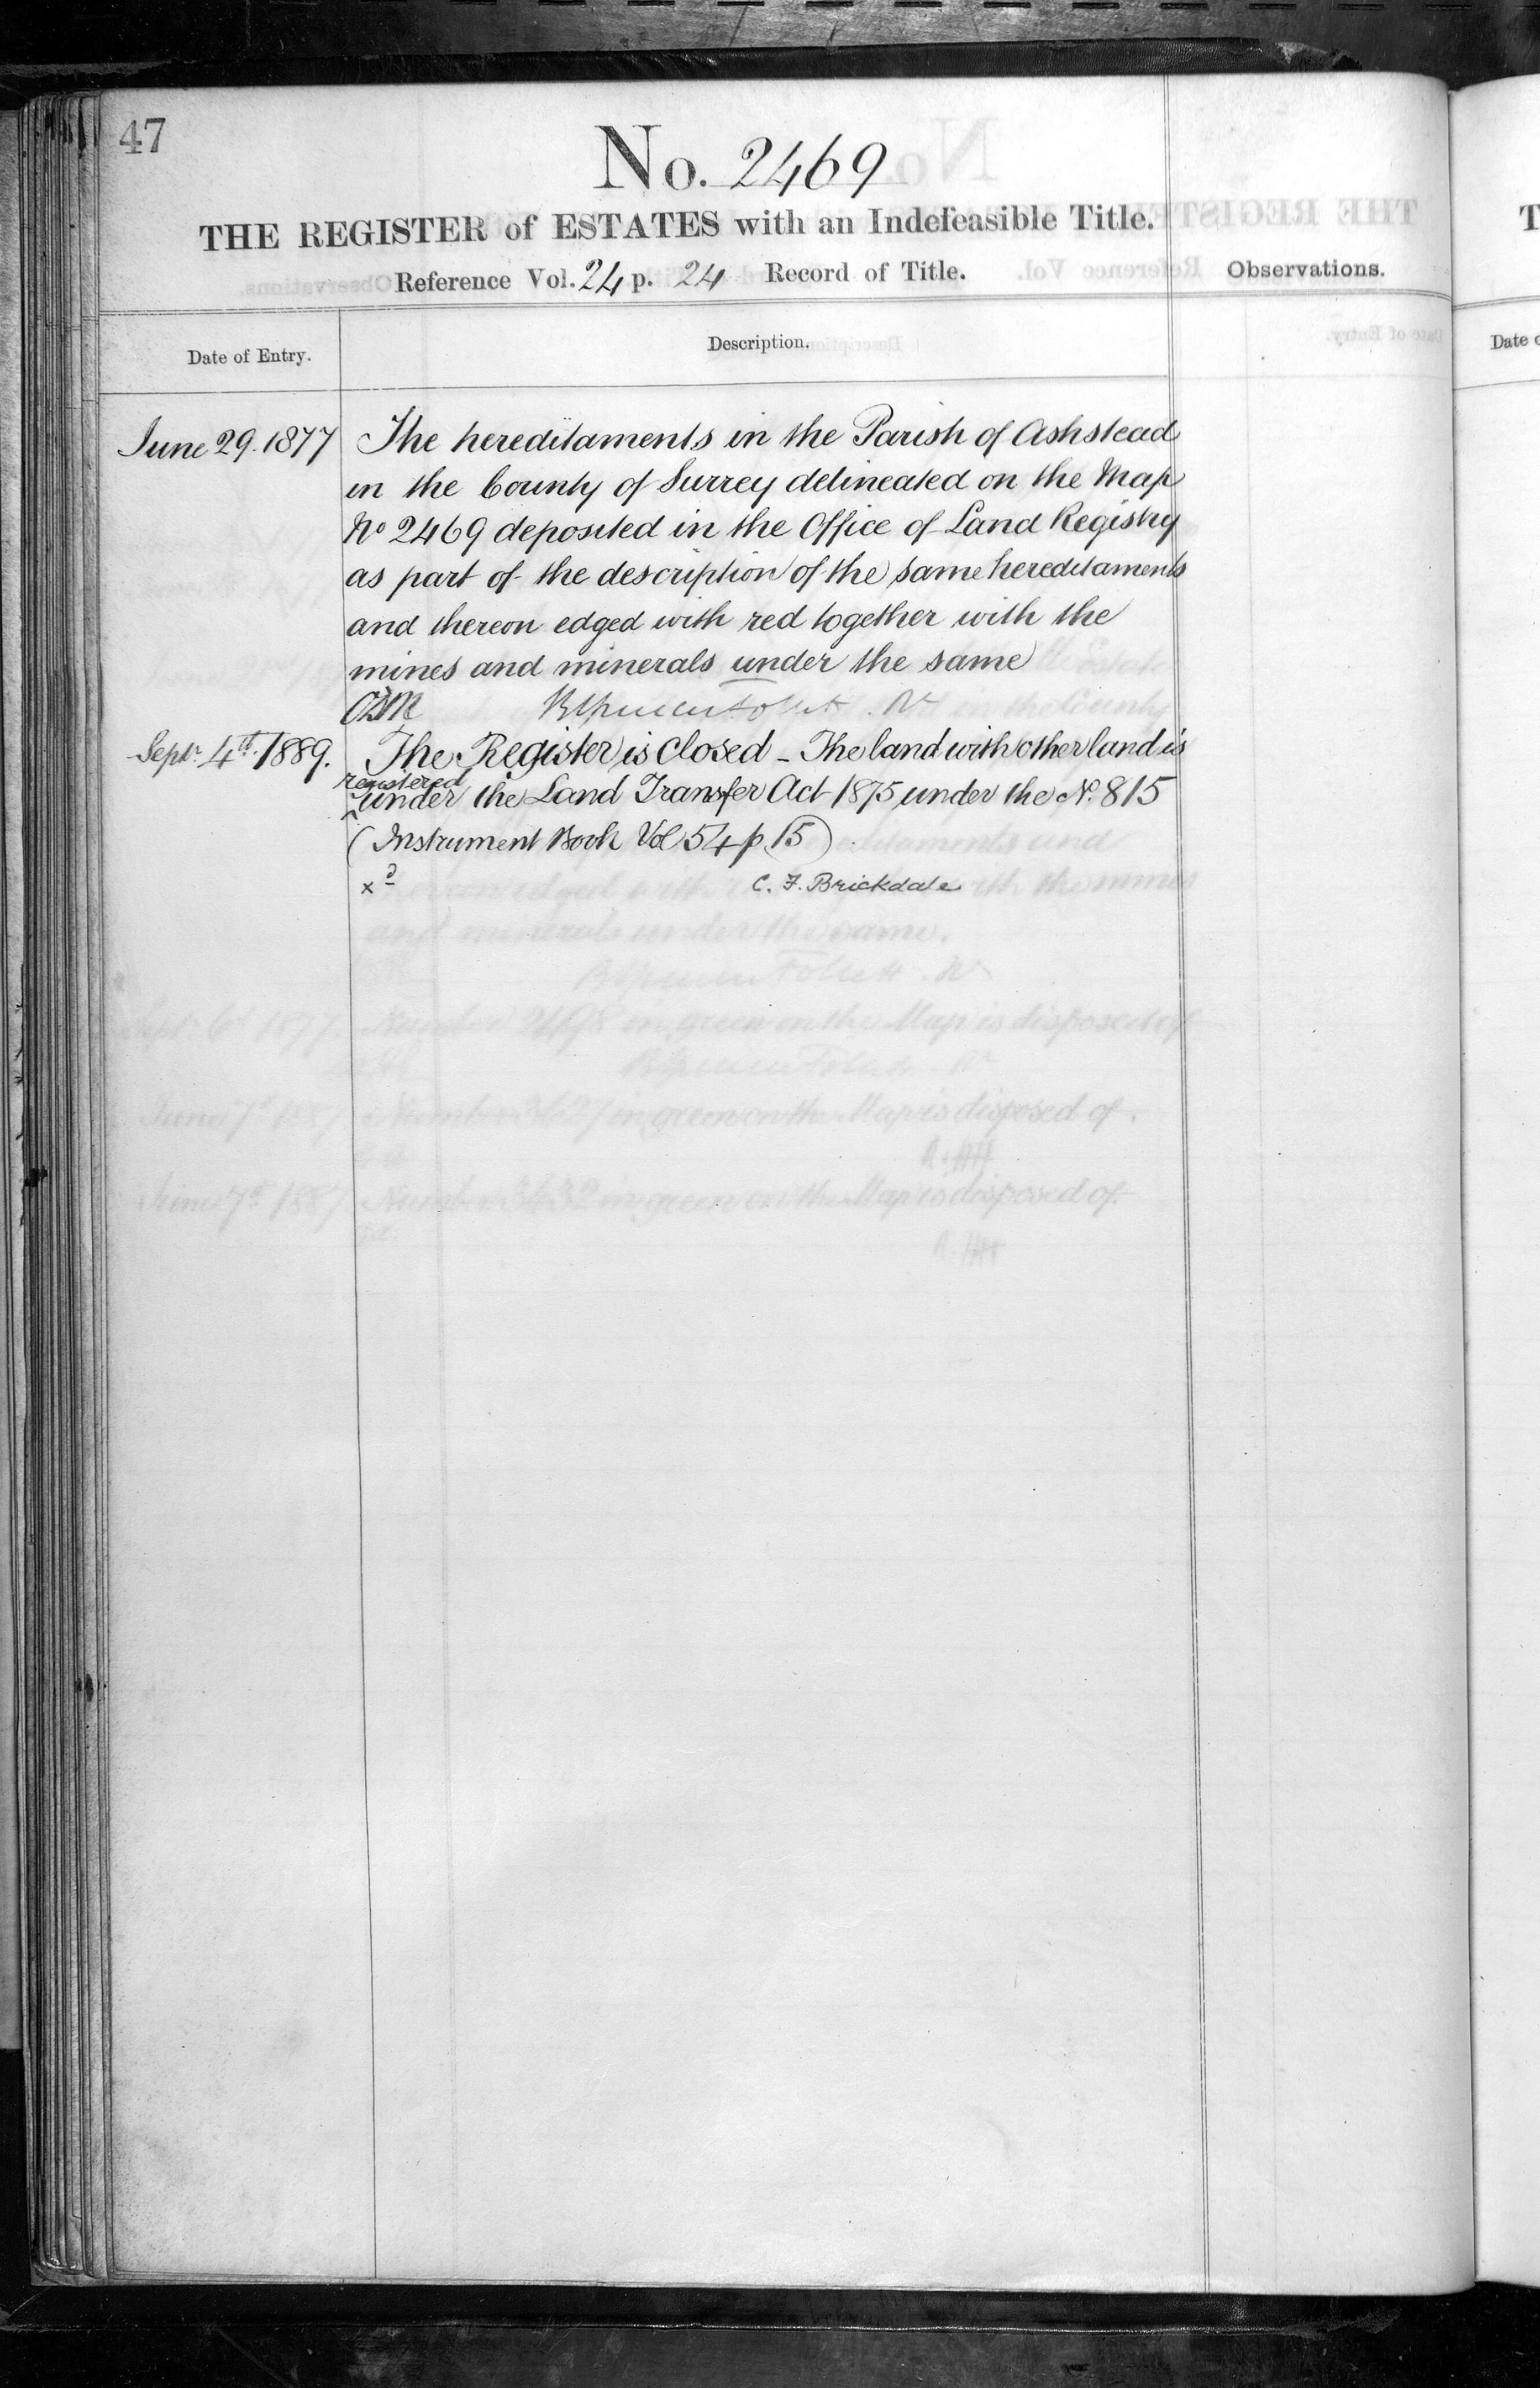 47
No. 2469
THE REGISTER of ESTATES with an Indefeasible Title.
Reference Vol. 24 p. 24 Record of Title.
Observations.
Date of Entry.
Description.
June 29. 1877
The hereditaments in the Parish of Ashstead
in the County of Surrey delineated on the Map
No 2469 deposited in the Office of Land Registry
as part of the description of the same hereditaments
and thereon edged with red together with the
mines and minerals under the same
Septr 4th 1889.
The Register is Closed – The land with other land is
registered
under the Land Transfer Act 1875 under the No. 815
(Instrument Book Vol 54 p 15)
xd
C. F. Brickdale